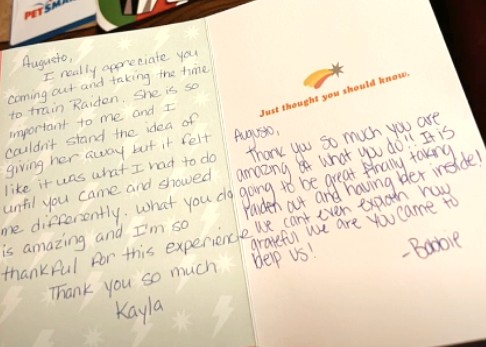 PETSMA
Augusto,
I really appreciate you
coming out and taking the time
to train Raiden. She is so
important to me and I
couldn't stand the idea of
giving her away but it felt
like it was what I had to do
until you came and showed
me differently. What you do
is amazing and I'm so
thankful for this experience
Thank you so much
Kayla
Just thought you should know.
Augusto,
Thank you so much you are
amazing at what you do!! It is
going to be great finally taking
Raiden out and having her inside!
We cant even explain how
grateful we are you came to
help us!
-Bobbie